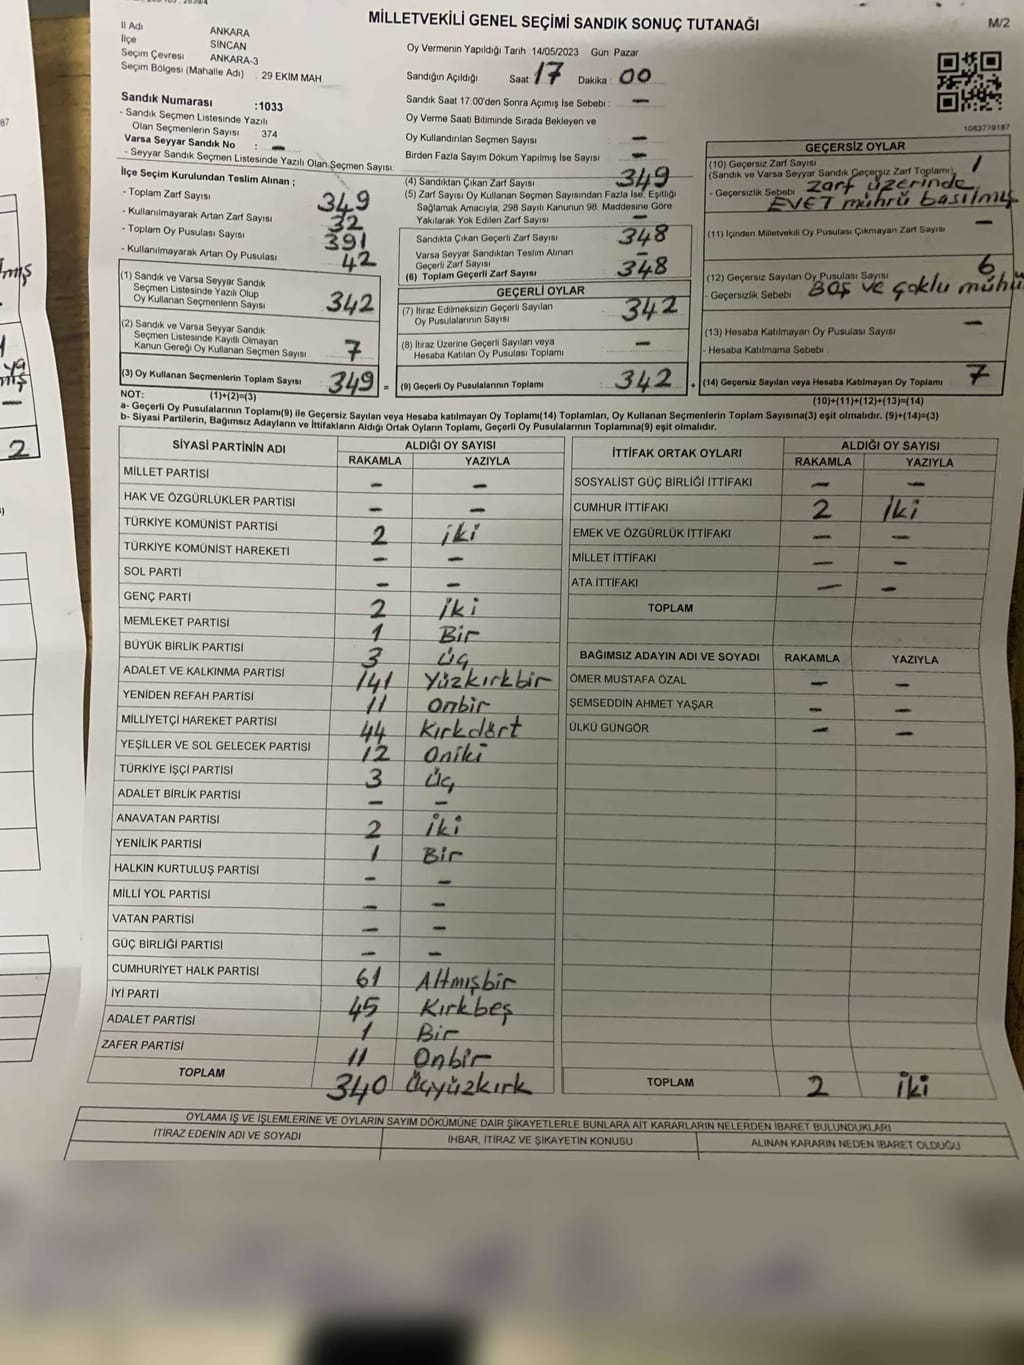 MİLLETVEKİLİ GENEL SEÇİMİ SANDIK SONUÇ TUTANAĞI
M/2
İl Adı ANKARA
İlçe SİNCAN
Seçim Çevresi ANKARA-3
Seçim Bölgesi (Mahalle Adı) . 29 EKİM MAH.
Sandık Numarası :1033
- Sandık Seçmen Listesinde Yazılı
Olan Seçmenlerin Sayısı : 374
Varsa Seyyar Sandık No : -
- Seyyar Sandık Seçmen Listesinde Yazılı Olan Seçmen Sayısı
Oy Vermenin Yapıldığı Tarih :14/05/2023 Gün Pazar
Sandığın Açıldığı Saat 17 Dakika : 00
Sandık Saat 17:00'den Sonra Açımış İse Sebebi : -
Oy Verme Saati Bitiminde Sırada Bekleyen ve
Oy Kullandırılan Seçmen Sayısı -
Birden Fazla Sayım Döküm Yapılmış İse Sayısı -
1063779187
İlçe Seçim Kurulundan Teslim Alınan ;
- Toplam Zarf Sayısı 349
- Kullanılmayarak Artan Zarf Sayısı 32
- Toplam Oy Pusulası Sayısı 391
- Kullanılmayarak Artan Oy Pusulası 42
(1) Sandık ve Varsa Seyyar Sandık
Seçmen Listesinde Yazılı Olup
Oy Kullanan Seçmenlerin Sayısı 342
(2) Sandık ve Varsa Seyyar Sandık
Seçmen Listesinde Kayıtlı Olmayan
Kanun Gereği Oy Kullanan Seçmen Sayısı 7
(3) Oy Kullanan Seçmenlerin Toplam Sayısı 349 =
(4) Sandıktan Çıkan Zarf Sayısı 349
(5) Zarf Sayısı Oy Kullanan Seçmen Sayısından Fazla İse, Eşitliği
Sağlamak Amacıyla; 298 Sayılı Kanunun 98. Maddesine Göre
Yakılarak Yok Edilen Zarf Sayısı -
Sandıkta Çıkan Geçerli Zarf Sayısı 348
Varsa Seyyar Sandıktan Teslim Alınan
Geçerli Zarf Sayısı -
(6) Toplam Geçerli Zarf Sayısı 348
GEÇERLİ OYLAR
(7) İtiraz Edilmeksizin Geçerli Sayılan
Oy Pusulalarının Sayısı 342
(8) İtiraz Üzerine Geçerli Sayılan veya
Hesaba Katılan Oy Pusulası Toplamı : -
(9) Geçerli Oy Pusulalarının Toplamı : 342 +
GEÇERSİZ OYLAR
(10) Geçersiz Zarf Sayısı 1
(Sandık ve Varsa Seyyar Sandık Geçersiz Zarf Toplamı)
- Geçersizlik Sebebi zarf üzerinde
EVET mührü basılmış
(11) İçinden Milletvekili Oy Pusulası Çıkmayan Zarf Sayısı -
(12) Geçersiz Sayılan Oy Pusulası Sayısı 6
- Geçersizlik Sebebi BOŞ ve çoklu mühü
(13) Hesaba Katılmayan Oy Pusulası Sayısı -
- Hesaba Katılmama Sebebi
(14) Geçersiz Sayılan veya Hesaba Katılmayan Oy Toplamı 7
NOT: (1)+(2)=(3) (10)+(11)+(12)+(13)=(14)
a- Geçerli Oy Pusulalarının Toplamı(9) ile Geçersiz Sayılan veya Hesaba katılmayan Oy Toplamı(14) Toplamları, Oy Kullanan Seçmenlerin Toplam Sayısına(3) eşit olmalıdır. (9)+(14)=(3)
b- Siyasi Partilerin, Bağımsız Adayların ve İttifakların Aldığı Ortak Oyların Toplamı, Geçerli Oy Pusulalarının Toplamına(9) eşit olmalıdır.
SİYASİ PARTİNİN ADI ALDIĞI OY SAYISI
RAKAMLA YAZIYLA
MİLLET PARTİSİ - -
HAK VE ÖZGÜRLÜKLER PARTİSİ - -
TÜRKİYE KOMÜNİST PARTİSİ 2 iki
TÜRKİYE KOMÜNİST HAREKETİ - -
SOL PARTİ - -
GENÇ PARTİ 2 iki
MEMLEKET PARTİSİ 1 Bir
BÜYÜK BİRLİK PARTİSİ 3 Üç
ADALET VE KALKINMA PARTİSİ 141 Yüzkırkbir
YENİDEN REFAH PARTİSİ 11 onbir
MİLLİYETÇİ HAREKET PARTİSİ 44 Kırkdört
YEŞİLLER VE SOL GELECEK PARTİSİ 12 Oniki
TÜRKİYE İŞÇİ PARTİSİ 3 Üç
ADALET BİRLİK PARTİSİ - -
ANAVATAN PARTİSİ 2 iki
YENİLİK PARTİSİ 1 Bir
HALKIN KURTULUŞ PARTİSİ - -
MİLLİ YOL PARTİSİ - -
VATAN PARTİSİ - -
GÜÇ BİRLİĞİ PARTİSİ - -
CUMHURİYET HALK PARTİSİ 61 Altmışbir
İYİ PARTİ 45 Kırkbeş
ADALET PARTİSİ 1 Bir
ZAFER PARTİSİ 11 Onbir
TOPLAM 340 Üçyüzkırk
İTTİFAK ORTAK OYLARI ALDIĞI OY SAYISI
RAKAMLA YAZIYLA
SOSYALİST GÜÇ BİRLİĞİ İTTİFAKI - -
CUMHUR İTTİFAKI 2 İki
EMEK VE ÖZGÜRLÜK İTTİFAKI - -
MİLLET İTTİFAKI - -
ATA İTTİFAKI - -
TOPLAM
BAĞIMSIZ ADAYIN ADI VE SOYADI RAKAMLA YAZIYLA
ÖMER MUSTAFA ÖZAL - -
ŞEMSEDDİN AHMET YAŞAR - -
ÜLKÜ GÜNGÖR - -
TOPLAM 2 iki
OYLAMA İŞ VE İŞLEMLERİNE VE OYLARIN SAYIM DÖKÜMÜNE DAİR ŞİKAYETLERLE BUNLARA AİT KARARLARIN NELERDEN İBARET BULUNDUKLARI
İTİRAZ EDENİN ADI VE SOYADI İHBAR, İTİRAZ VE ŞİKAYETİN KONUSU ALINAN KARARIN NEDEN İBARET OLDUĞU